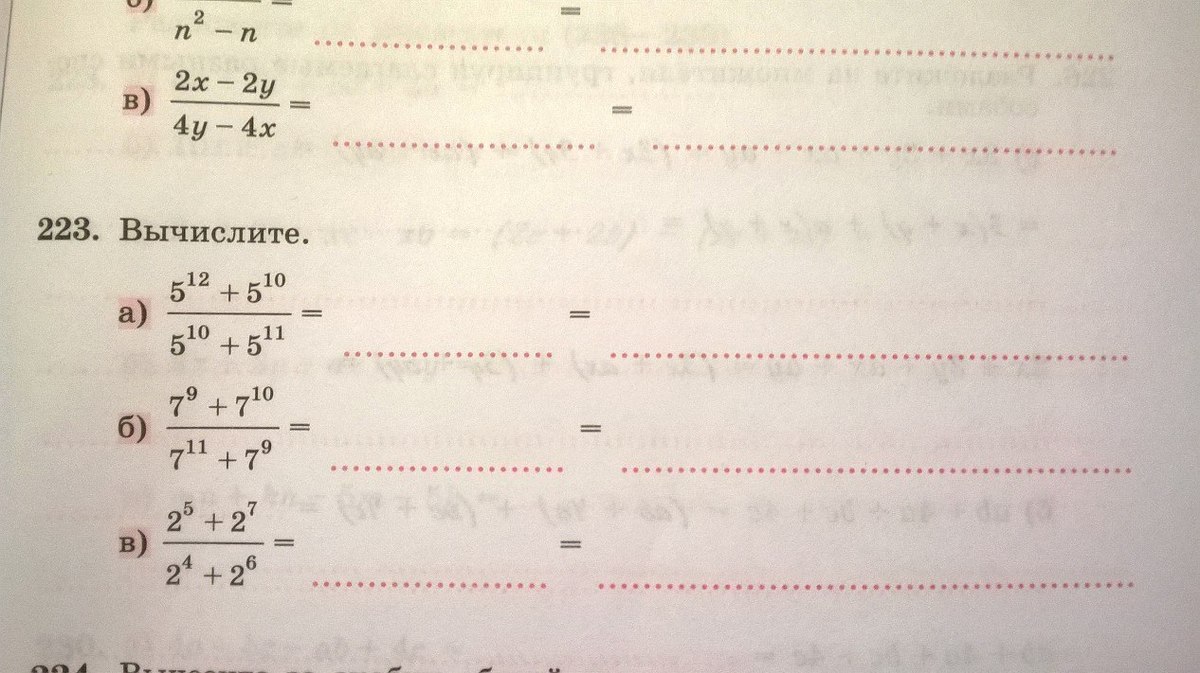 б) n² − n = =
в) (2x − 2y)/(4y − 4x) = =
223. Вычислите.
а) (5¹² + 5¹⁰)/(5¹⁰ + 5¹¹) = =
б) (7⁹ + 7¹⁰)/(7¹¹ + 7⁹) = =
в) (2⁵ + 2⁷)/(2⁴ + 2⁶) = =